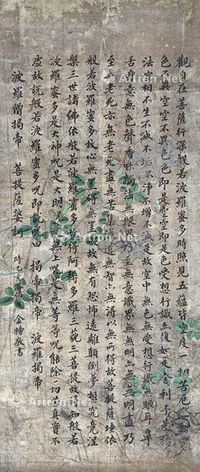 觀自在菩薩行深般若波羅蜜多時照見五蘊皆空度一切苦厄
色不異空空不異色色即是空空即是色受想行識亦復如是舍利子是諸
法空相不生不滅不垢不淨不增不減是故空中無色無受想行識無眼耳鼻
舌身意無色聲香味觸法無眼界乃至無意識界無無明亦無無明盡乃
至無老死亦無老死盡無苦集滅道無智亦無得以無所得故菩提薩埵依
般若波羅蜜多故心無罣礙無罣礙故無有恐怖遠離顛倒夢想究竟涅
槃三世諸佛依般若波羅蜜多故得阿耨多羅三藐三菩提故知般若
波羅蜜多是大神呪是大明呪是無上呪是無等等呪能除一切苦真實不
虛故說般若波羅蜜多呪即說呪曰 揭帝揭帝 波羅揭帝
波羅僧揭帝 菩提薩婆訶